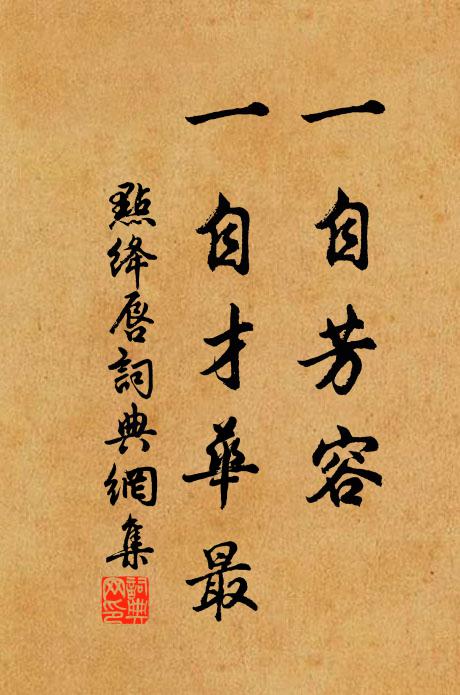 一自芳容
一自才華最
點絳唇詞典網集
詞典
网印